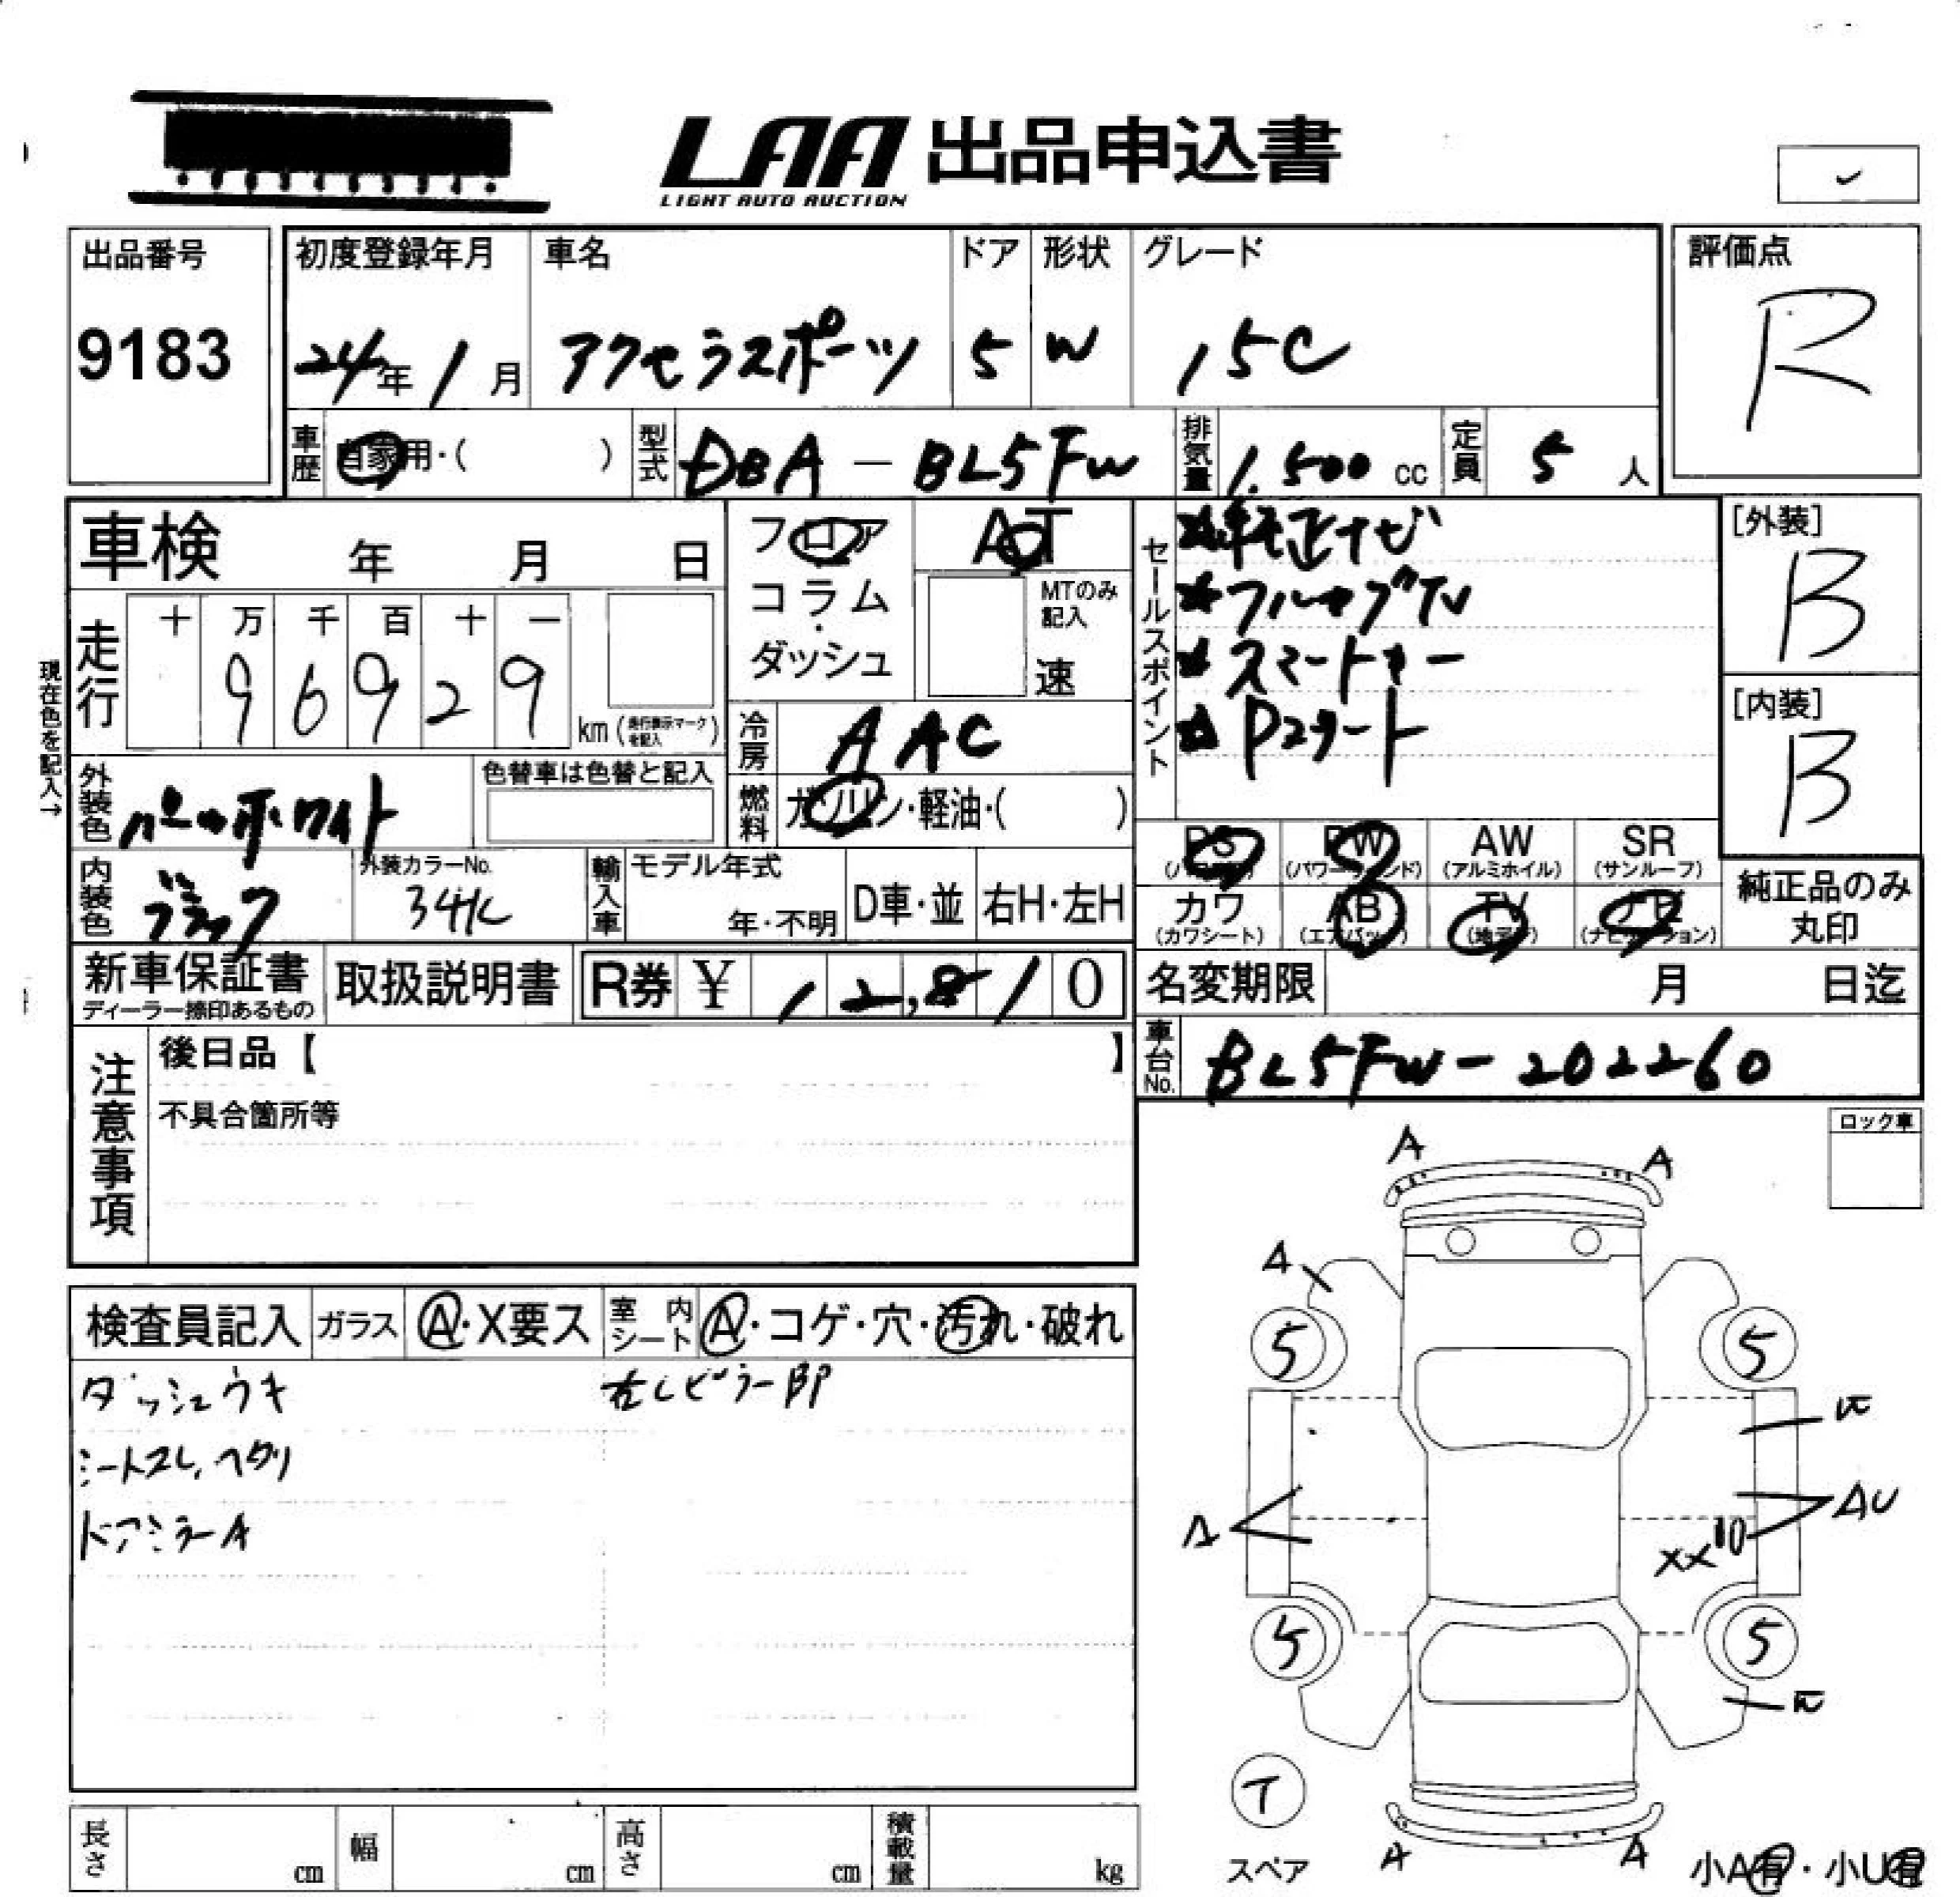 LAA 出品申込書
LIGHT AUTO AUCTION
出品番号
9183
初度登録年月
24年1月
車名
アクセラスポーツ
ドア
5
形状
W
グレード
15C
評価点
R
車歴
自家用・( )
型式
DBA-BL5FW
排気量
1.500 cc
定員
5 人
車検 年 月 日
フロア
コラム
・
ダッシュ
AT
MTのみ
記入
速
セールスポイント
★純正ナビ
★フルセグTV
★スマートキー
★Pスタート
[外装]
B
[内装]
B
現在色を記入→
走行
十 万 千 百 十 一
9 6 9 2 9
km (走行表示マークを記入)
冷房
AAC
外装色
パールホワイト
色替車は色替と記入
燃料
ガソリン・軽油・( )
PS PW AW SR
(パワステ) (パワーウィンド) (アルミホイル) (サンルーフ)
カワ AB TV ナビ
(カワシート) (エアバッグ) (地デジ) (ナビゲーション)
純正品のみ
丸印
内装色
ブラック
外装カラーNo.
34K
輸入車
モデル年式
年・不明
D車・並
右H・左H
新車保証書
ディーラー捺印あるもの
取扱説明書
R券 ¥ 12,810
名変期限 月 日迄
車台No.
BL5FW-202260
注意事項
後日品【 】
不具合箇所等
ロック車
検査員記入
ガラス
A・X要ス
室内
シート
A・コゲ・穴・汚れ・破れ
ダッシュウキ
シートスレ,ヘタリ
ドアミラーA
右Cピラー BP
A A
A
5 5
A
AU
XX 10
5 5
T
スペア
A A
小A有・小U有
長さ cm
幅 cm
高さ cm
積載量 kg